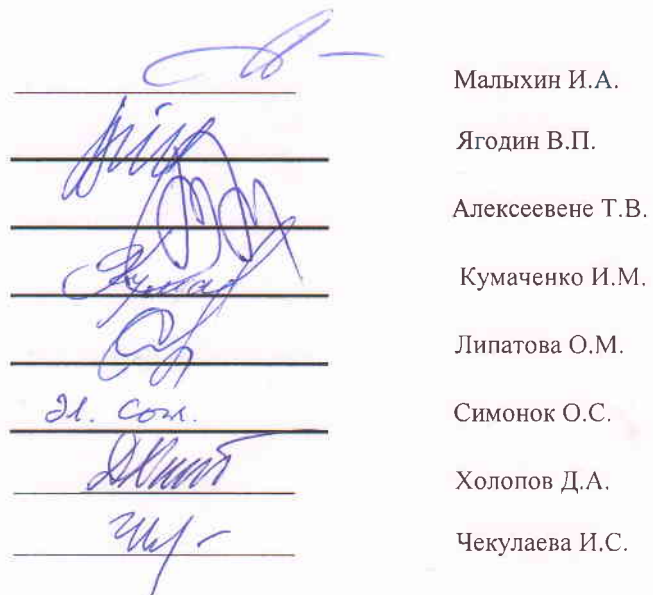 Малыхин И.А.
Ягодин В.П.
Алексеевене Т.В.
Кумаченко И.М.
Липатова О.М.
эл. согл. Симонок О.С.
Холопов Д.А.
Чекулаева И.С.